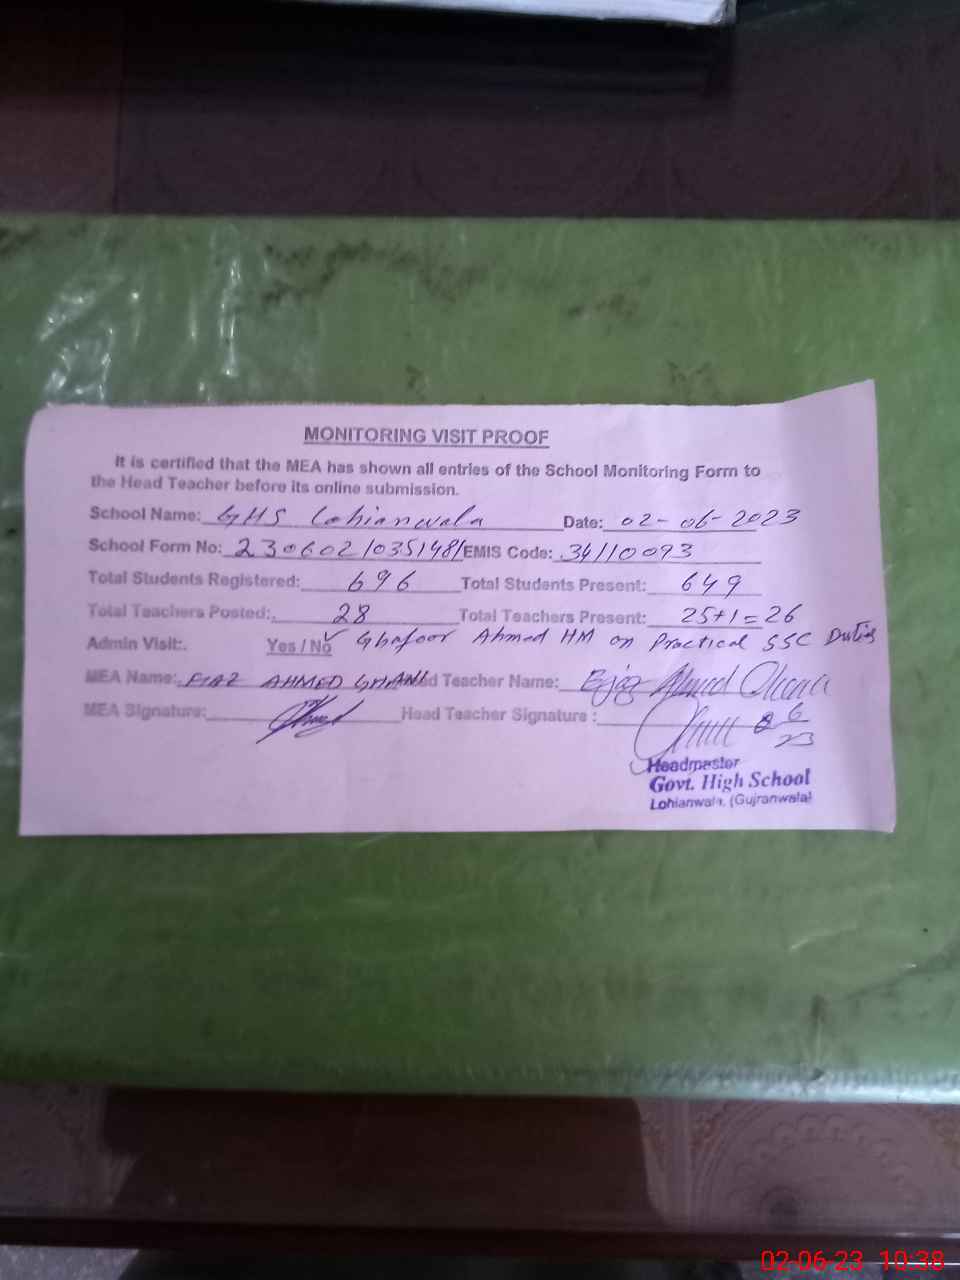 MONITORING VISIT PROOF
It is certified that the MEA has shown all entries of the School Monitoring Form to
the Head Teacher before its online submission.
School Name: GHS Lohianwala Date: 02-06-2023
School Form No: 230602/035148/ EMIS Code: 34110093
Total Students Registered: 696 Total Students Present: 649
Total Teachers Posted: 28 Total Teachers Present: 25+1=26
Admin Visit:. Yes / No ✓ Ghafoor Ahmad HM on Practical SSC Duties
MEA Name: AHMED GHANI d Teacher Name: Ejaz Ahmed
MEA Signature: Head Teacher Signature :
6
23
Headmaster
Govt. High School
Lohianwala, (Gujranwala)
02-06-23 10:38